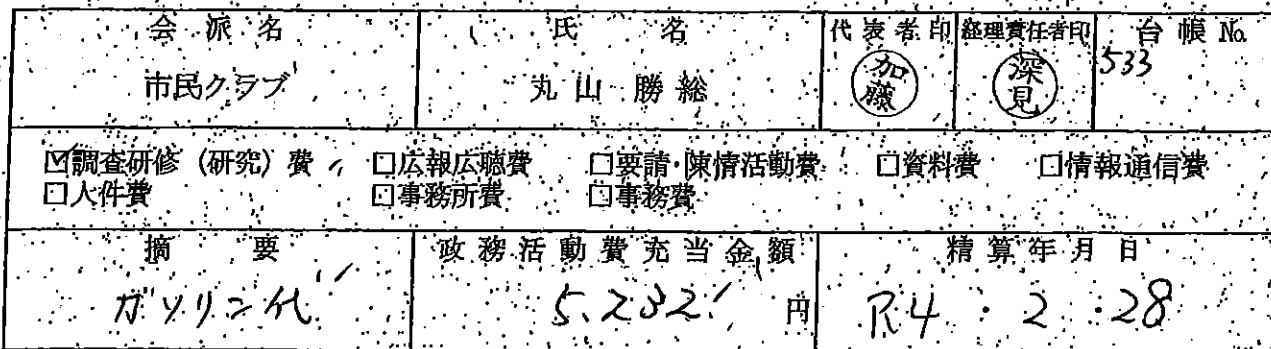 会派名 氏名 代表者印 経理責任者印 台帳No.
市民クラブ 丸山勝総 加藤 深見 533
☑調査研修（研究）費 □広報広聴費 □要請・陳情活動費 □資料費 □情報通信費
□人件費 □事務所費 □事務費
摘要 政務活動費充当金額 精算年月日
ガソリン代 5,232 円 R4・2・28